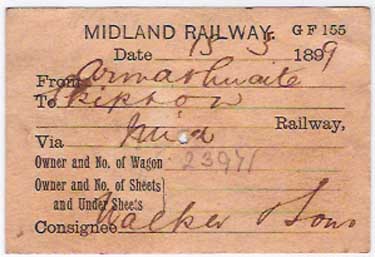 MIDLAND RAILWAY. G F 155
Date 15 5 1899
From Armathwaite
To Skipton
Railway,
Via Mid
Owner and No. of Wagon 23971
Owner and No. of Sheets
and Under Sheets
Consignee Walker & Sons